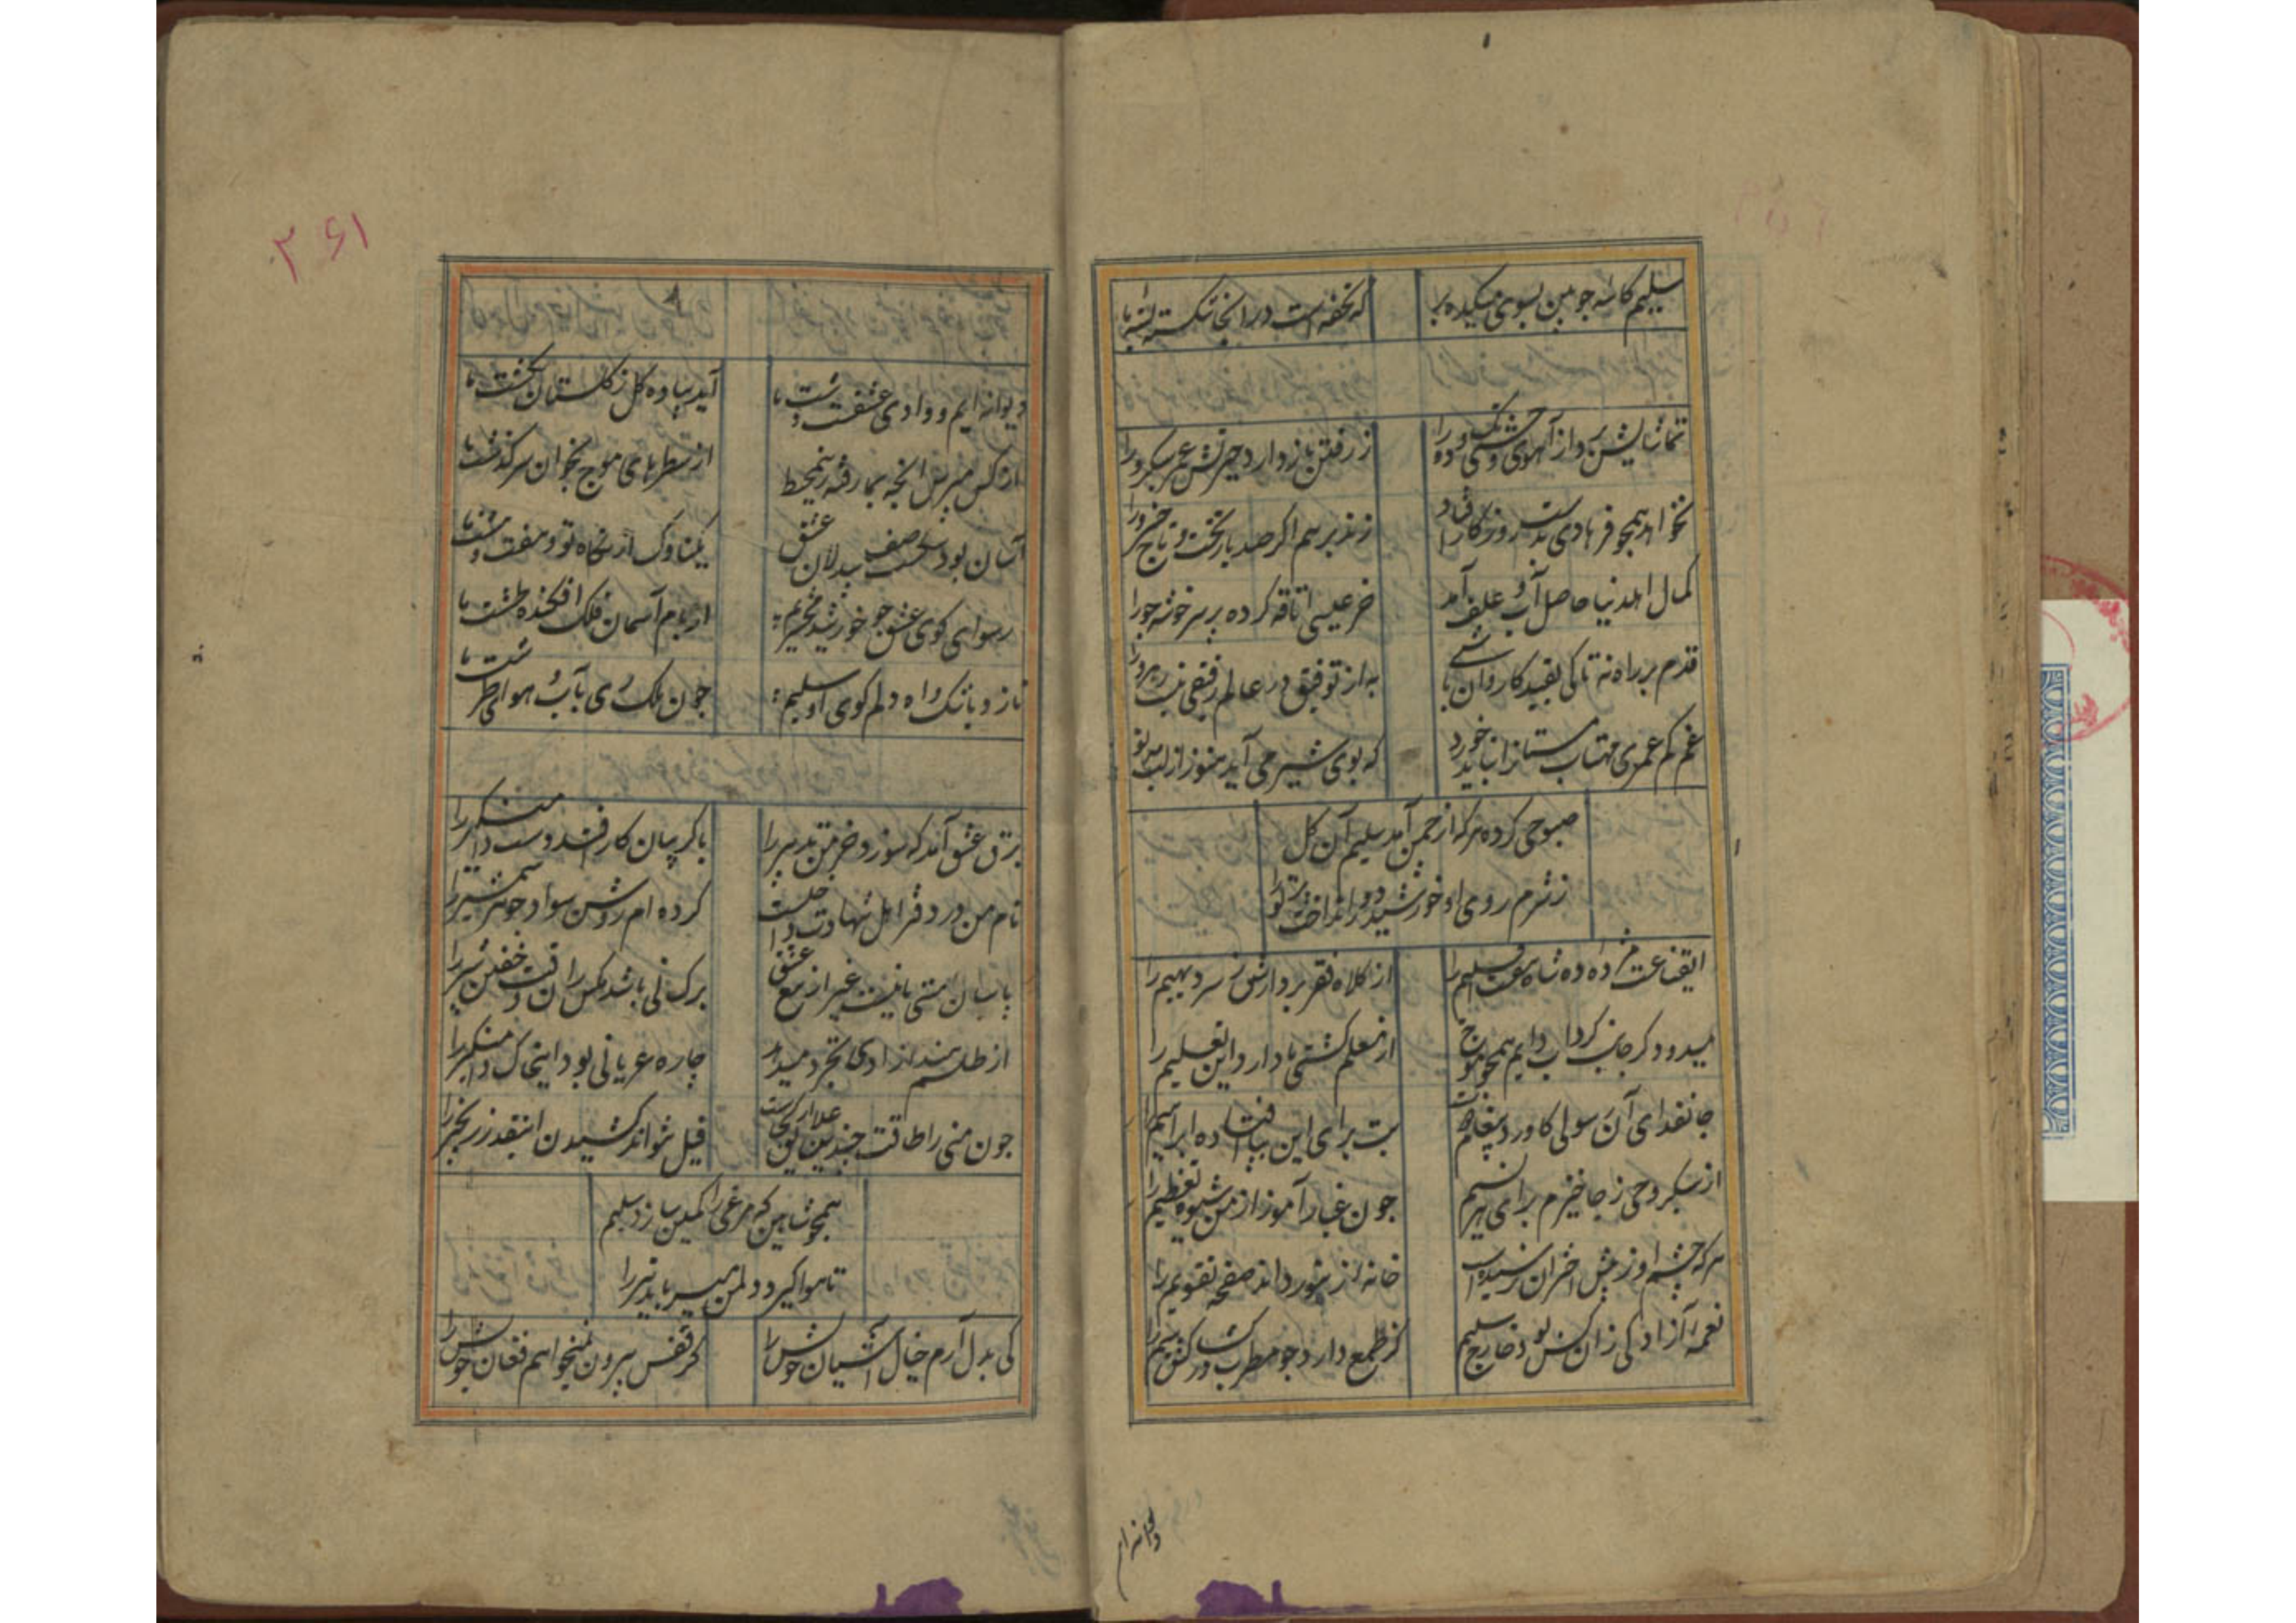 سلیم کاسه چوبین بسوی میکده بر
که تخفه است در انجا شکسته بسته ما
تماشایش برد از آهوی وحشی تک و دو را
ز رفتن باز دارد حیرتش عمر سبکرو را
نخواهد همچو فرهادی بدست روزکار افتاد
زند بر هم اکر صد بار تخت و تاج خسرو را
کمال اهل دنیا حاصل آب و علف آمد
خر عیسی اتاقه کرده بر سر خوشه جو را
قدم بر راه نه تا کی بقید کاروان باشی
به از توفیق در عالم رفیقی نیست رهرو را
غم کم عمری مهتاب مستانرا نباید خورد
که بوی شیر می آید هنوز از لب مه نو را
صبوحی کرده هرکه از چمن آمد سلیم آن کل
ز شرم روی او خورشید دور انداخت پرتو را
ای قناعت مژده ده شاه هفت اقلیم را
از کلاه فقر بردارش ز سر دیهیم را
میرود کر جانب کرداب دایم همچو موج
از معلم کشتی ما دارد این تعلیم را
جانفدای آن رسولی کاورد پیغام دوست
بت برای این بپا افتاده ابراهیم را
از سبکروحی ز جا خیزم برای هر نسیم
چون غبار آموز از من شیوه تعظیم را
هرکه چشم او ز پیش اختران ترسیده است
خانه زنبور داند صفحه تقویم را
نغمه آزادکی زان کس بود خارج سلیم
کز طمع دارد چو مطرب در کف سیم را
دیوانه ایم
۳۶۱
دیوانه ایم و وادی عشقست دشت ما
آید پیاده کل ز کلستان بکشت ما
از کس مپرس انچه بما رفته زین محیط
از سطرهای موج بخوان سرکذشت ما
آسان بود شکست صف بیدلان عشق
یک ناوک از نکاه تو و هفت و هشت ما
رسوای کوی عشق چو خورشید محشریم
از بام آسمان فلک افکنده طشت ما
چون ملک ری بآب و هوا طشت ما
برق عشق آمد که سوزد خرمن تدبیر را
با کریبان کار افتد دست دامنکیر را
نام من در دفتر اهل شهادت داخلست
کرده ام روشن سواد جوهر شمشیر را
پاسبان مستی ما نیست غیر از مع عشق
برک نی باشد مکس ران وقت خفتن شیر را
از طلسم بند آزادی تجرد میدهد
چاره عریانی بود این خاک دامنکیر را
چون منی را طاقت چندین تعلق از کجاست
فیل نتواند کشیدن اینقدر زنجیر را
همچو شاهین که مرغی را کمین سازد سلیم
تا هوا کیرد دلمن میرباید تیر را
کی بدل آرم خیال آشیان خویش را
کز قفس بیرون نمیخواهم فغان خویش را